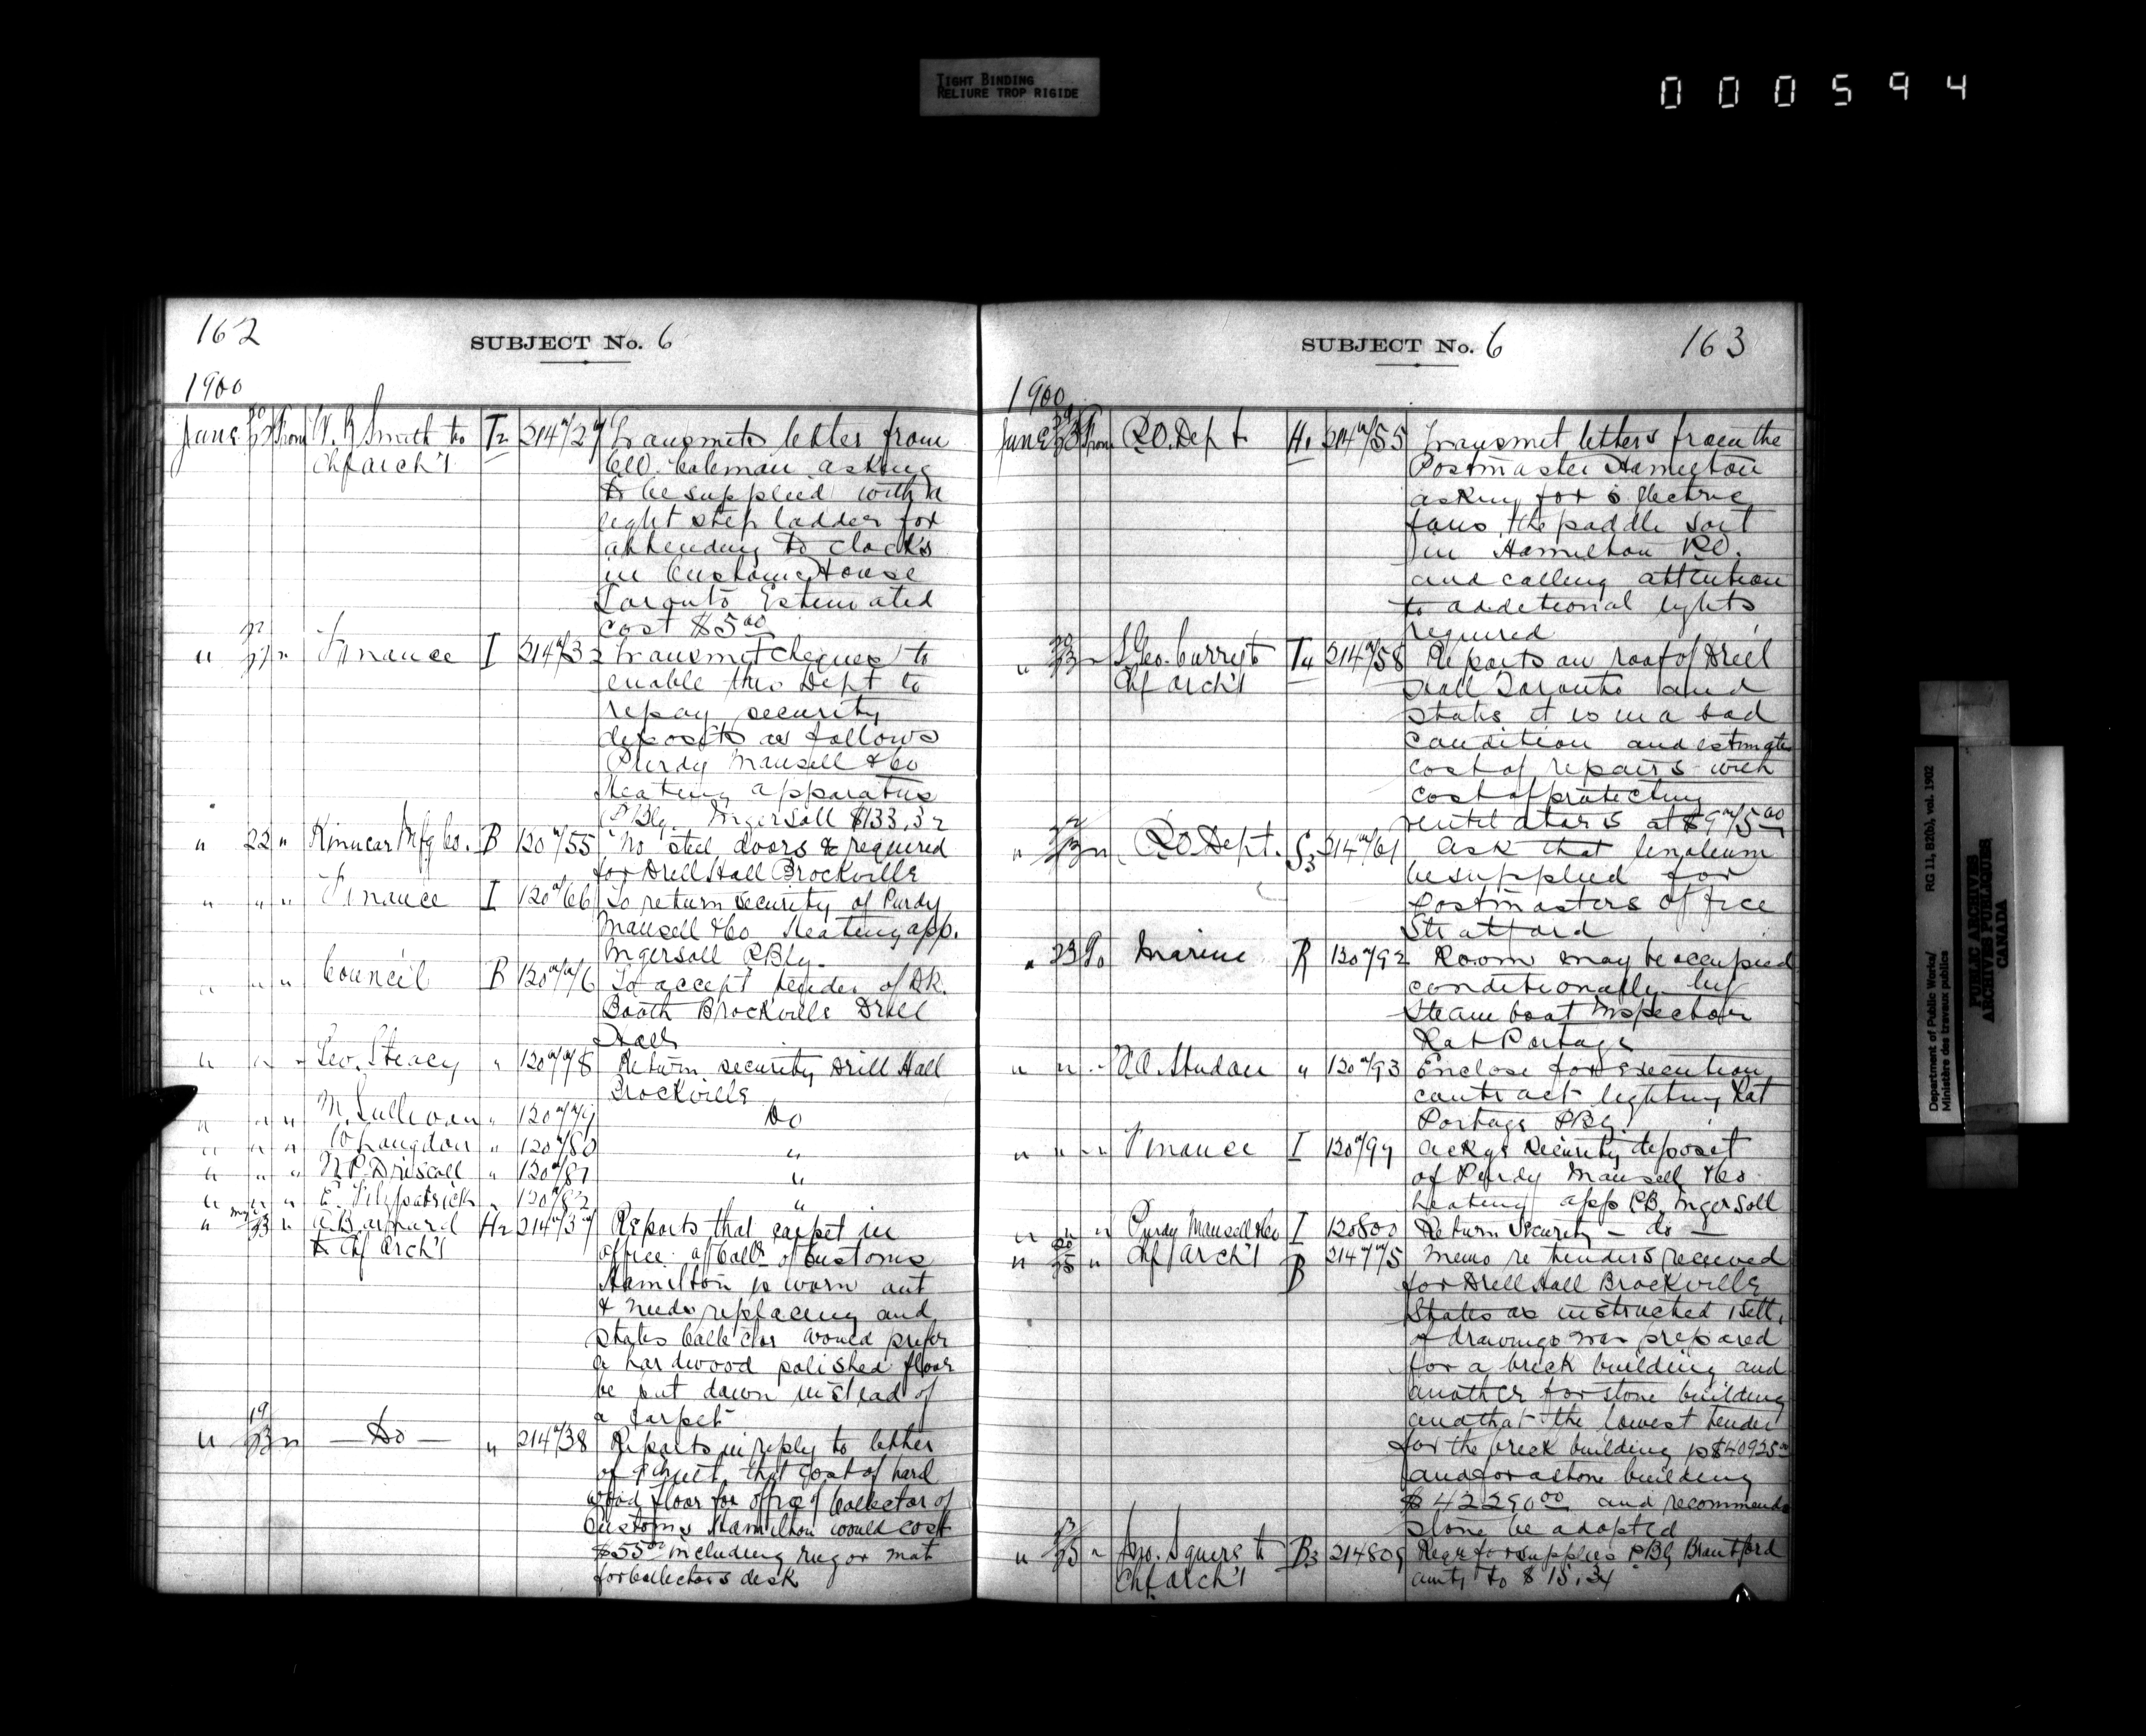 TIGHT BINDING
RELIURE TROP RIGIDE
000594
162
SUBJECT No. 6
1900
June From W. R Smith to T2 214 Transmits letter from
Chf Arch't Coleman asking
to be supplied with a
light step ladder for
attending to clocks
in Customs House
Toronto Estimated
cost $5 00
" " Finance I 214 Transmit cheques to
enable this Dept to
repay security
deposits as follows
Purdy Mansell & Co
Heating apparatus
P Blg. Ingersoll $133.32
" 22 " Kinnear Mfg Co. B 120 "/55 No steel doors required
for Drill Hall Brockville
" " " Finance I 120 "/66 To return security of Purdy
Mansell & Co Heating app.
Ingersoll P Blg.
" " " Council B 120 To accept tender of
Booth Brockville Drill
Hall
" " " Geo. Steacy " 120 Return security Drill Hall
Brockville
" " " M. Sullivan " 120 Do
" " " Langdon " 120 "/80 "
" " " Driscoll " 120 "/81 "
" " " E. Fitzpatrick " 120 "/82 "
" " A. Barnard H2 214 Reports that carpet in
to Chf Arch't office of Collr of Customs
Hamilton is worn out
& needs replacing and
states Collector would prefer
a hardwood polished floor
be put down instead of
a carpet
" " — Do — " 214 "/38 Reports in reply to letter
of that cost of hard
wood floor for office of Collector of
Customs Hamilton would cost
$55 00 including rug or mat
for Collectors desk
SUBJECT No. 6
163
1900
June From P.O. Dept H1 214 "/55 Transmit letters from the
Postmaster Hamilton
asking for 6 electric
fans, the paddle sort
in Hamilton P.O.
and calling attention
to additional lights
required
" " S Geo. Curry to T4 214 "/58 Reports on roof of Drill
Chf Arch't Hall Toronto and
states it is in a bad
condition and estimates
cost of repairs with
cost of protecting
ventilators at
" " P.O. Dept. S3 214 "/61 Ask that linoleum
be supplied for
Postmasters office
Stratford
" 23 To Marine R 120 "/92 Room may be occupied
conditionally by
Steamboat Inspector
Rat Portage
" " " " 120 "/93 Enclose for execution
contract lighting Rat
Portage P Blg.
" " " Finance I 120 Ackgs security deposit
of Purdy Mansell & Co
heating app P.B. Ingersoll
" " " Purdy Mansell & Co I 120800 Return Security — do —
" " Chf Arch't B 214 Memo re tenders received
for Drill Hall Brockville
States as instructed 1 sett.
of drawings was prepared
for a brick building and
another for stone building
and that the lowest tender
for the brick building is $40925 00
and for a stone building
$42290 00 and recommends
stone be adopted
" " Jno. Squire to B3 214809 Reqr for supplies P Blg Brantford
Chf. Arch't amtg to $15.34
Department of Public Works/
Ministère des travaux publics
RG 11, B2(b), vol. 1902
PUBLIC ARCHIVES
ARCHIVES PUBLIQUES
CANADA